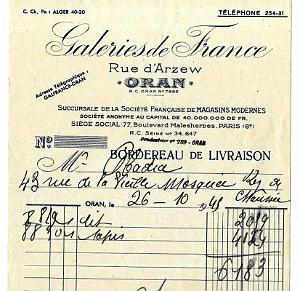 C. Ch. Px : ALGER 40-20
TÉLÉPHONE 254-81
Galeries de France
Rue d'Arzew
Adresse Télégraphique :
GALIFRANCI-ORAN
ORAN
R. C. ORAN No 7862
SUCCURSALE DE LA SOCIÉTÉ FRANÇAISE DE MAGASINS MODERNES
SOCIÉTÉ ANONYME AU CAPITAL DE 40.000.000 DE FR.
SIÈGE SOCIAL : 77, BOULEVARD MALESHERBES, PARIS (8e)
R. C. SEINE No 34.647
Producteur No 739 - ORAN
No
BORDEREAU DE LIVRAISON
M
43 rue de la Vieille Mosquée
ORAN, le 26-10 1948
dit 2019
tapis
6183